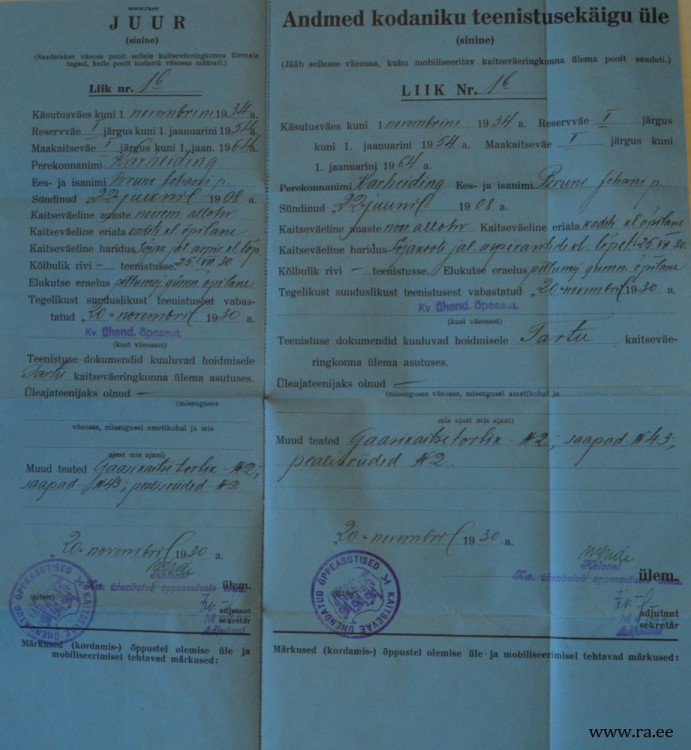 www.ra.ee
JUUR
(sinine)
(Saadetakse väeosa poolt sellele kaitseväeringkonna ülemale
tagasi, kelle poolt kodanik väeossa määrati.)
Liik nr. 16
Käsutusväes kuni 1 novembrini 1934 a.
Reservväe I järgus kuni 1. jaanuarini 1954 a.
Maakaitseväe I järgus kuni 1. jaan. 1964 a.
Perekonnanimi Karheiding
Ees- ja isanimi Johani p.
Sündinud 22 juunil 1908 a.
Kaitseväeline aukraste noorem allohv
Kaitseväeline eriala kadeti kl. õpilane
Kaitseväeline haridus Sõjak. jal. aspir. kl. lõp.
Kõlbulik rivi — teenistusse. 25. VII 30
Elukutse eraelus põllumj. gümn. õpilane
Tegelikust sunduslikust teenistusest vabas-
tatud „20" novembril 1930 a.
Kv. Ühend. õpeasut.
(kust väeosast)
Teenistuse dokumendid kuuluvad hoidmisele
Tartu kaitseväeringkonna ülema asutuses.
Üleajateenijaks olnud —
(missuguses
väeosas, missugusel ametikohal ja mis
ajast mis ajani)
Muud teated Gaasikaitse torbik - N2;
saapad - N43; pealisriided - N2
„20" novembril 1930 a.
Kolonel
Kv. ühendatud õppeasutiste ülem.
adjutant
sekretär
Adjutant
KAITSEVÄE ÜHENDATUD ÕPPEASUTISED
Märkused (kordamis-) õppustel olemise üle ja
mobiliseerimisel tehtavad märkused:
Andmed kodaniku teenistusekäigu üle
(sinine)
(Jääb sellesse väeossa, kuhu mobiliseeritav kaitseväeringkonna ülema poolt saadeti.)
LIIK Nr. 16
Käsutusväes kuni 1 novembrini 1934 a. Reservväe I järgus
kuni 1. jaanuarini 1954 a. Maakaitseväe I järgus kuni
1. jaanuarini 1964 a.
Perekonnanimi Karheiding Ees- ja isanimi Johani p.
Sündinud 22 juunil 1908 a.
Kaitseväeline aukraste noor. allohv Kaitseväeline eriala kadeti kl. õpilane
Kaitseväeline haridus Sõjakooli jal. aspirantide kl. lõpet. 25. VII 30
Kõlbulik rivi — teenistusse. Elukutse eraelus põllumj. gümn. õpilane
Tegelikust sunduslikust teenistusest vabastatud „20" novembril 1930 a.
Kv. Ühend. õpeasut.
(kust väeosast)
Teenistuse dokumendid kuuluvad hoidmisele Tartu kaitseväe-
ringkonna ülema asutuses.
Üleajateenijaks olnud —
(missuguses väeosas, missugusel ametikohal ja
mis ajast mis ajani)
Muud teated Gaasikaitse torbik - N2; saapad N43;
pealisriided N2.
„20" novembril 1930 a.
Kolonel
Kv. ühendatud õppeasutiste ülem.
adjutant
sekretär
Adjutant
KAITSEVÄE ÜHENDATUD ÕPPEASUTISED
Märkused (kordamis-) õppustel olemise üle ja mobiliseerimisel tehtavad märkused:
www.ra.ee